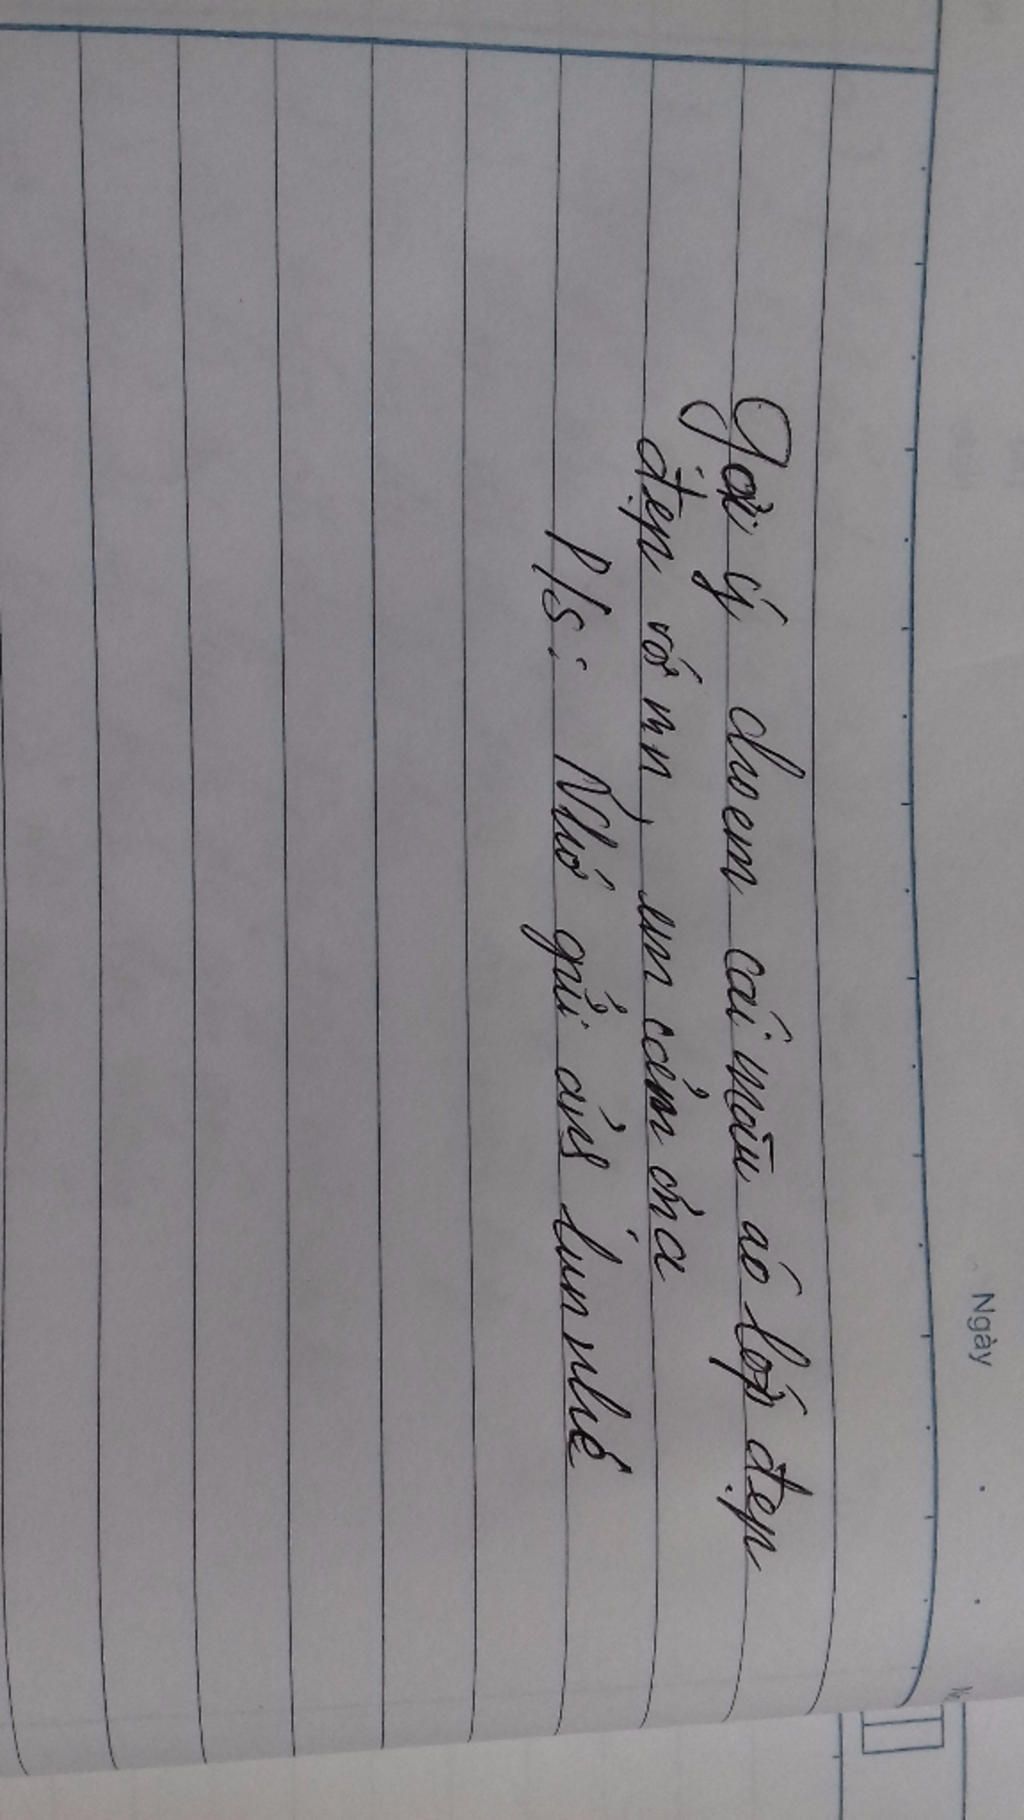 Ngày
Gợi ý cho em cái mẫu áo lớp đẹp
đẹp với mn, em cảm ơn ạ
P/s: Nhớ gửi ảnh lun nhé